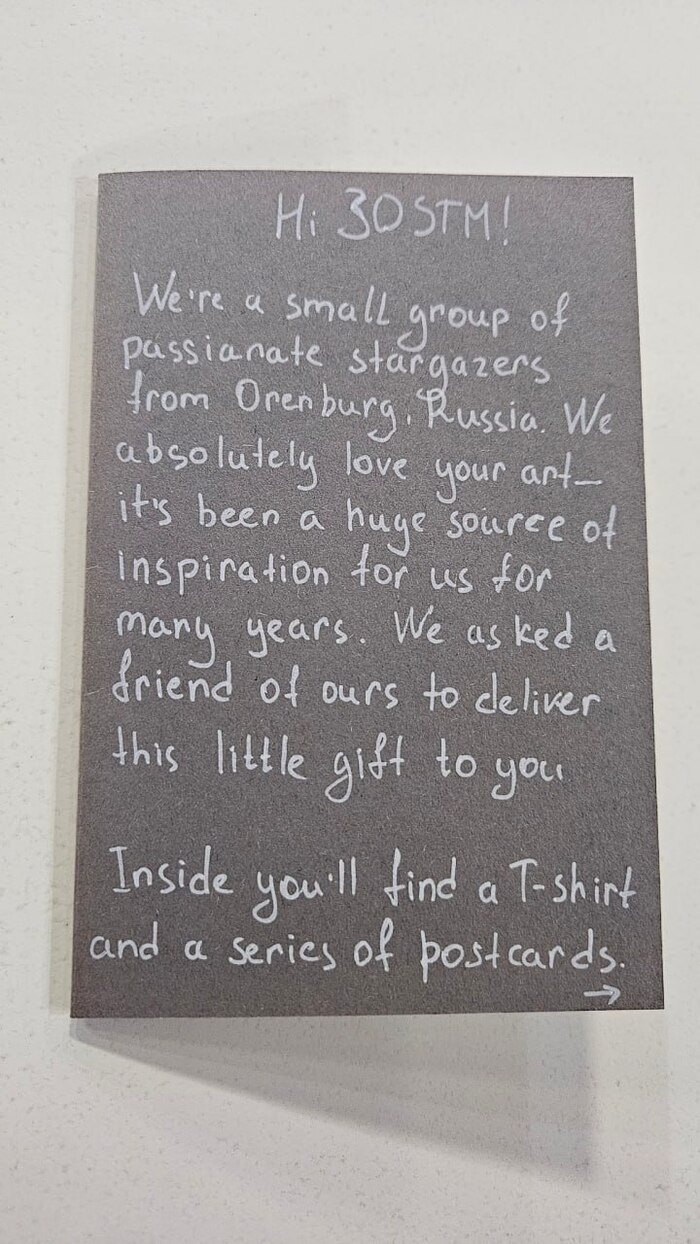 Hi 30STM!
We're a small group of
passianate stargazers
from Orenburg, Russia. We
absolutely love your art–
it's been a huge source of
inspiration for us for
many years. We asked a
friend of ours to deliver
this little gift to you
Inside you'll find a T-shirt
and a series of postcards.
→